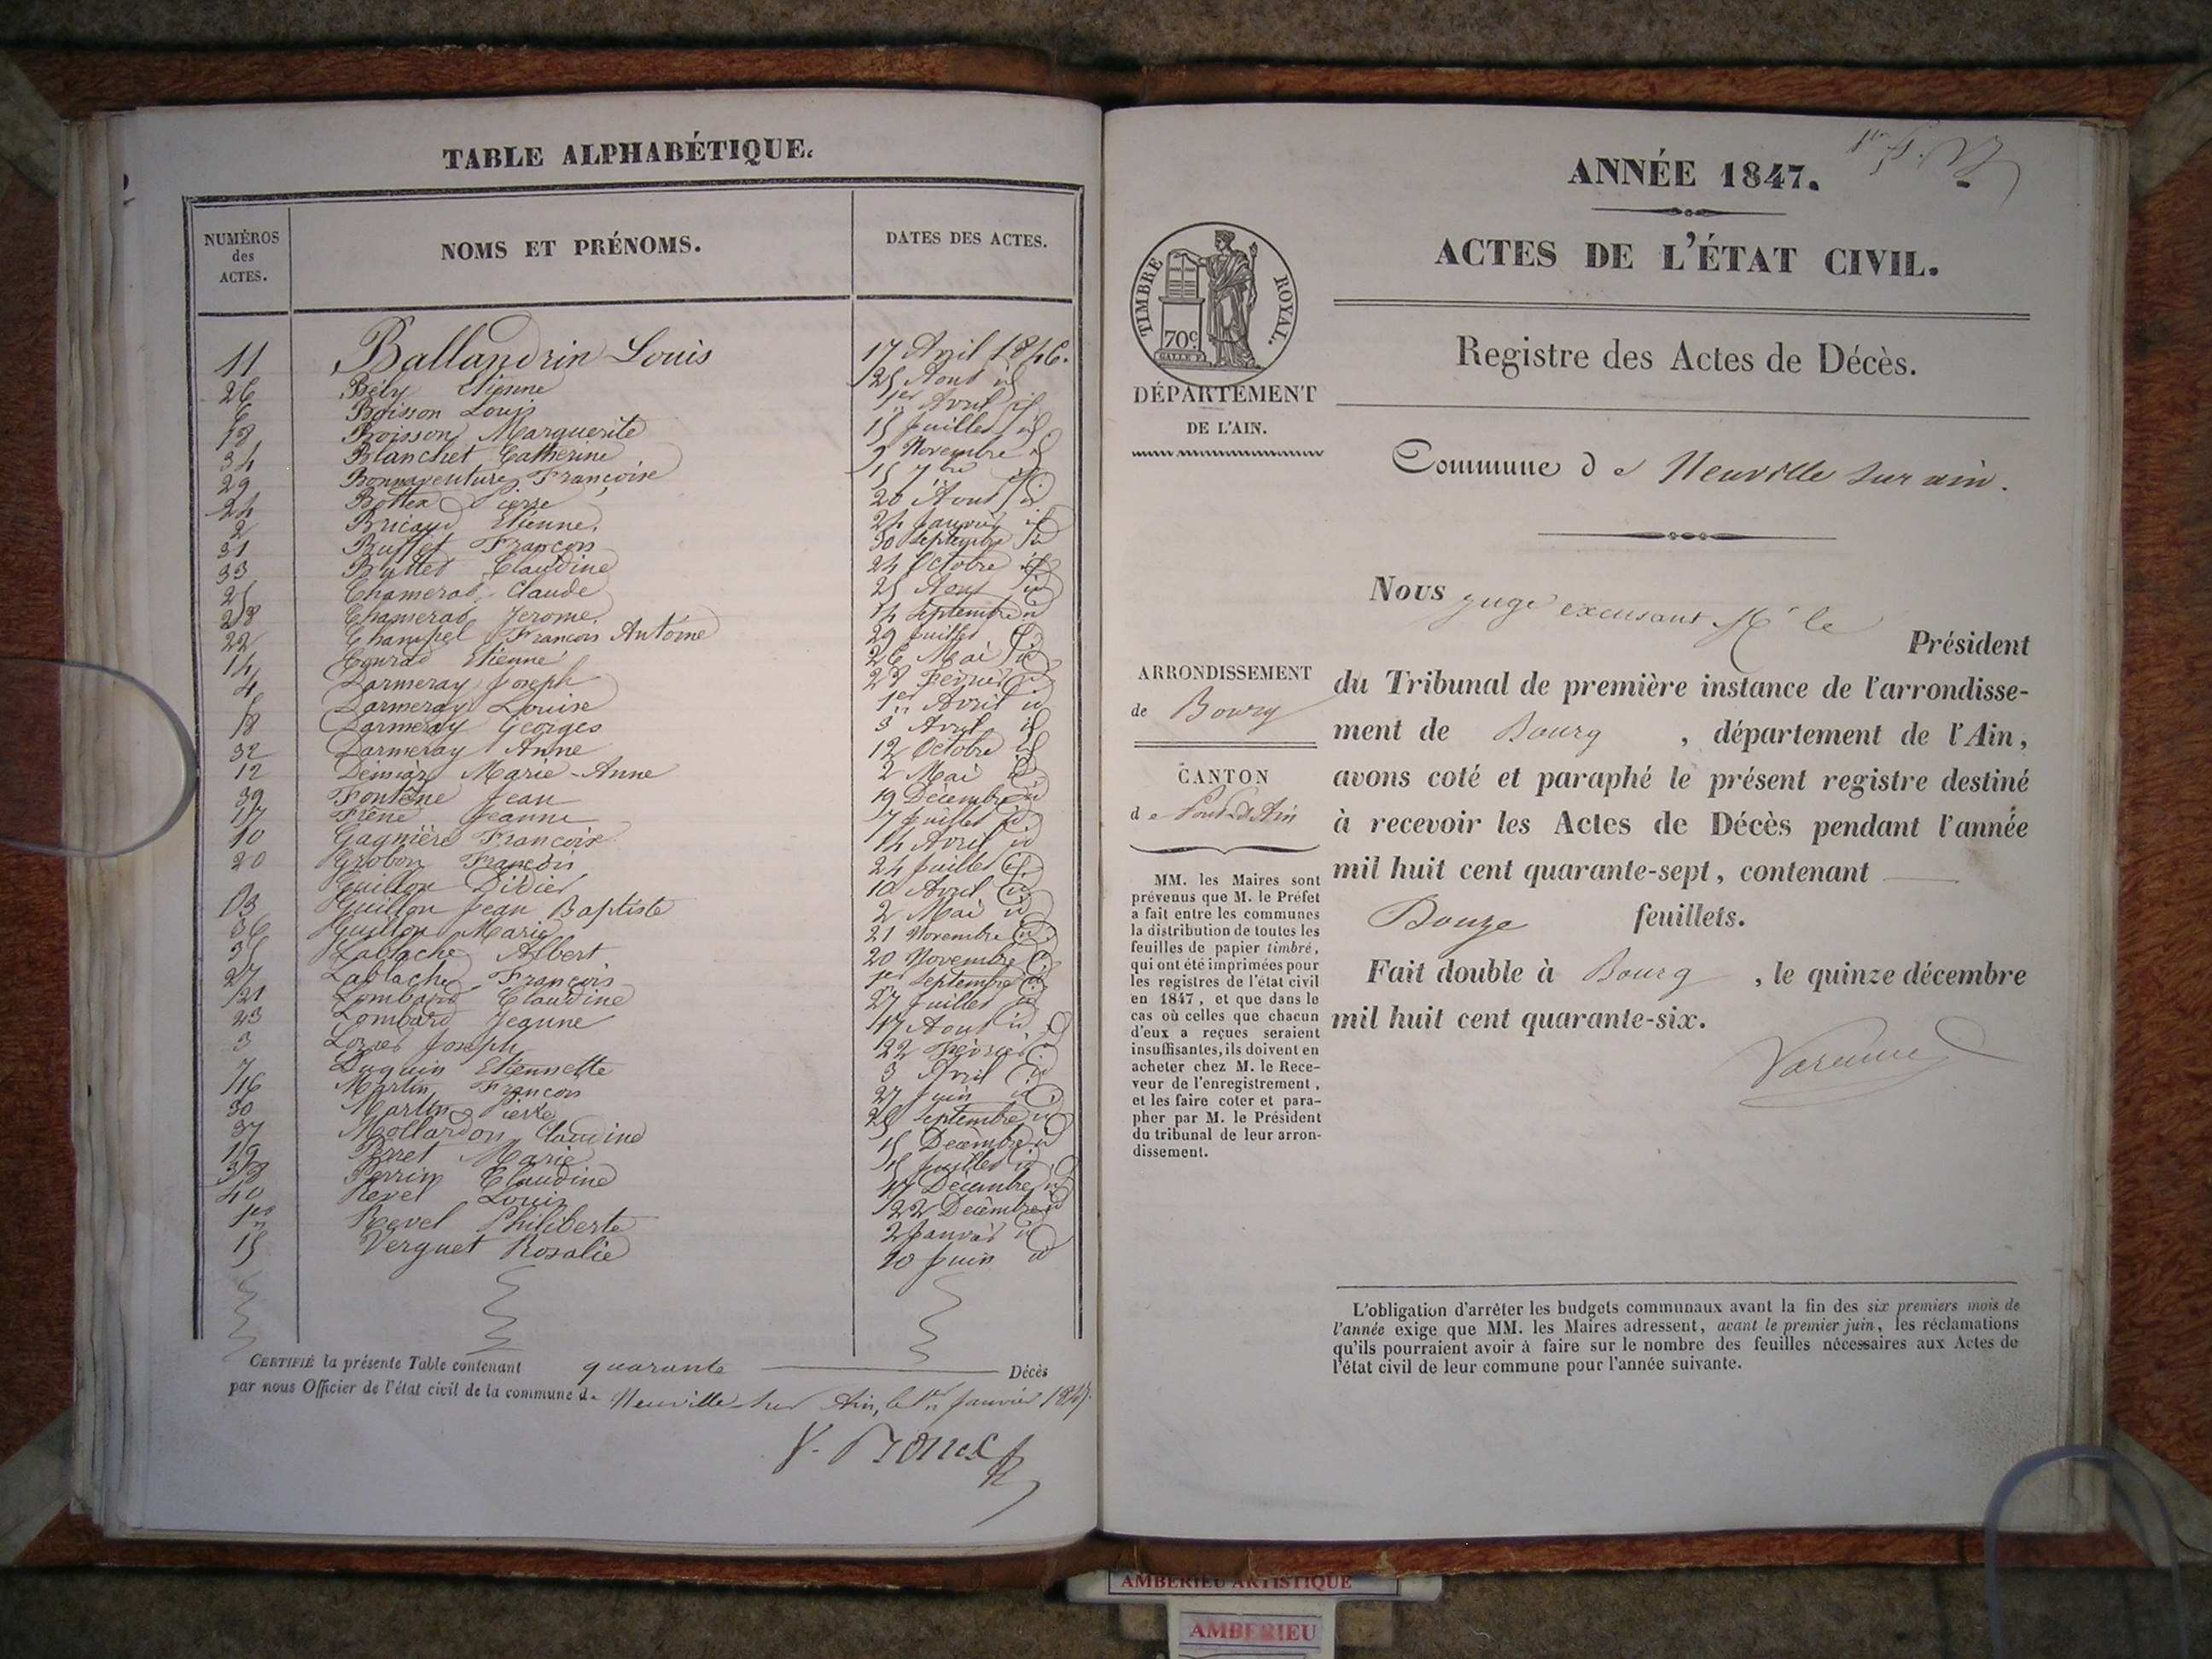 TABLE ALPHABÉTIQUE.
NUMÉROS
des
ACTES.
NOMS ET PRÉNOMS.
DATES DES ACTES.
11 Ballandrin Louis 17 Avril 1846.
26 Bély Etienne 25 Aout id
6 Boisson Louis 1er Avril id
18 Boisson Marguerite 15 Juillet id
34 Blanchet Catherine 9 Novembre id
29 Bonnaventure Françoise 15 7bre id
24 Bottex Pierre 20 Aout id
2 Bricaud Etienne 24 Janvier id
31 Buffet François 30 Septembre id
33 Buffet Claudine 24 Octobre id
25 Chamerat Claude 25 Aout id
28 Chamerat Jerome 14 Septembre id
22 Champel François Antoine 29 Juillet id
14 Conrad Etienne 26 Mai id
4 Darmeray Joseph 28 Février id
Darmeray Louise 1er Avril id
8 Darmeray Georges 3 Avril id
32 Darmeray Anne 12 Octobre id
12 Marie-Anne 2 Mai id
39 Fontène Jean 19 Décembre id
17 Frène Jeanne 7 Juillet id
10 Gagnière François 14 Avril id
20 Grobon François 24 Juillet id
Guillon Didier 10 Avril id
13 Guillon Jean Baptiste 2 Mai id
36 Guillon Marie 21 Novembre id
35 Lablache Albert 20 Novembre id
27 Lablache François 1er Septembre id
21 Lombard Claudine 27 Juillet id
23 Lombard Jeanne 17 Aout id
3 Joseph 22 Février id
7 Luquin Etiennette 3 Avril id
16 Martin François 27 Juin id
30 Martin Pierre Septembre id
37 Mollardon Claudine 15 Decembre id
19 Perret Marie 15 Juillet id
38 Perrin Claudine 17 Décembre id
40 Revel Louis 22 Decembre id
1er Revel Philiberte 2 Janvier id
15 Verguet Rosalie 10 Juin id
CERTIFIÉ la présente Table contenant quarante Décès
par nous Officier de l'état civil de la commune de Neuville sur Ain, le 1er Janvier 1847.
ANNÉE 1847.
ACTES DE L'ÉTAT CIVIL.
TIMBRE ROYAL.
70c
Registre des Actes de Décès.
DÉPARTEMENT
DE L'AIN.
Commune de Neuville sur ain.
Nous juge excusant Mr le
Président
du Tribunal de première instance de l'arrondisse-
ment de Bourg, département de l'Ain,
avons coté et paraphé le présent registre destiné
à recevoir les Actes de Décès pendant l'année
mil huit cent quarante-sept, contenant
Douze feuillets.
Fait double à Bourg, le quinze décembre
mil huit cent quarante-six.
ARRONDISSEMENT
de Bourg
CANTON
de Pont d'Ain
MM. les Maires sont
prévenus que M. le Préfet
a fait entre les communes
la distribution de toutes les
feuilles de papier timbré,
qui ont été imprimées pour
les registres de l'état civil
en 1847, et que dans le
cas où celles que chacun
d'eux a reçues seraient
insuffisantes, ils doivent en
acheter chez M. le Rece-
veur de l'enregistrement,
et les faire coter et para-
pher par M. le Président
du tribunal de leur arron-
dissement.
L'obligation d'arrêter les budgets communaux avant la fin des six premiers mois de
l'année exige que MM. les Maires adressent, avant le premier juin, les réclamations
qu'ils pourraient avoir à faire sur le nombre des feuilles nécessaires aux Actes de
l'état civil de leur commune pour l'année suivante.
AMBERIEU ARTISTIQUE
AMBERIEU